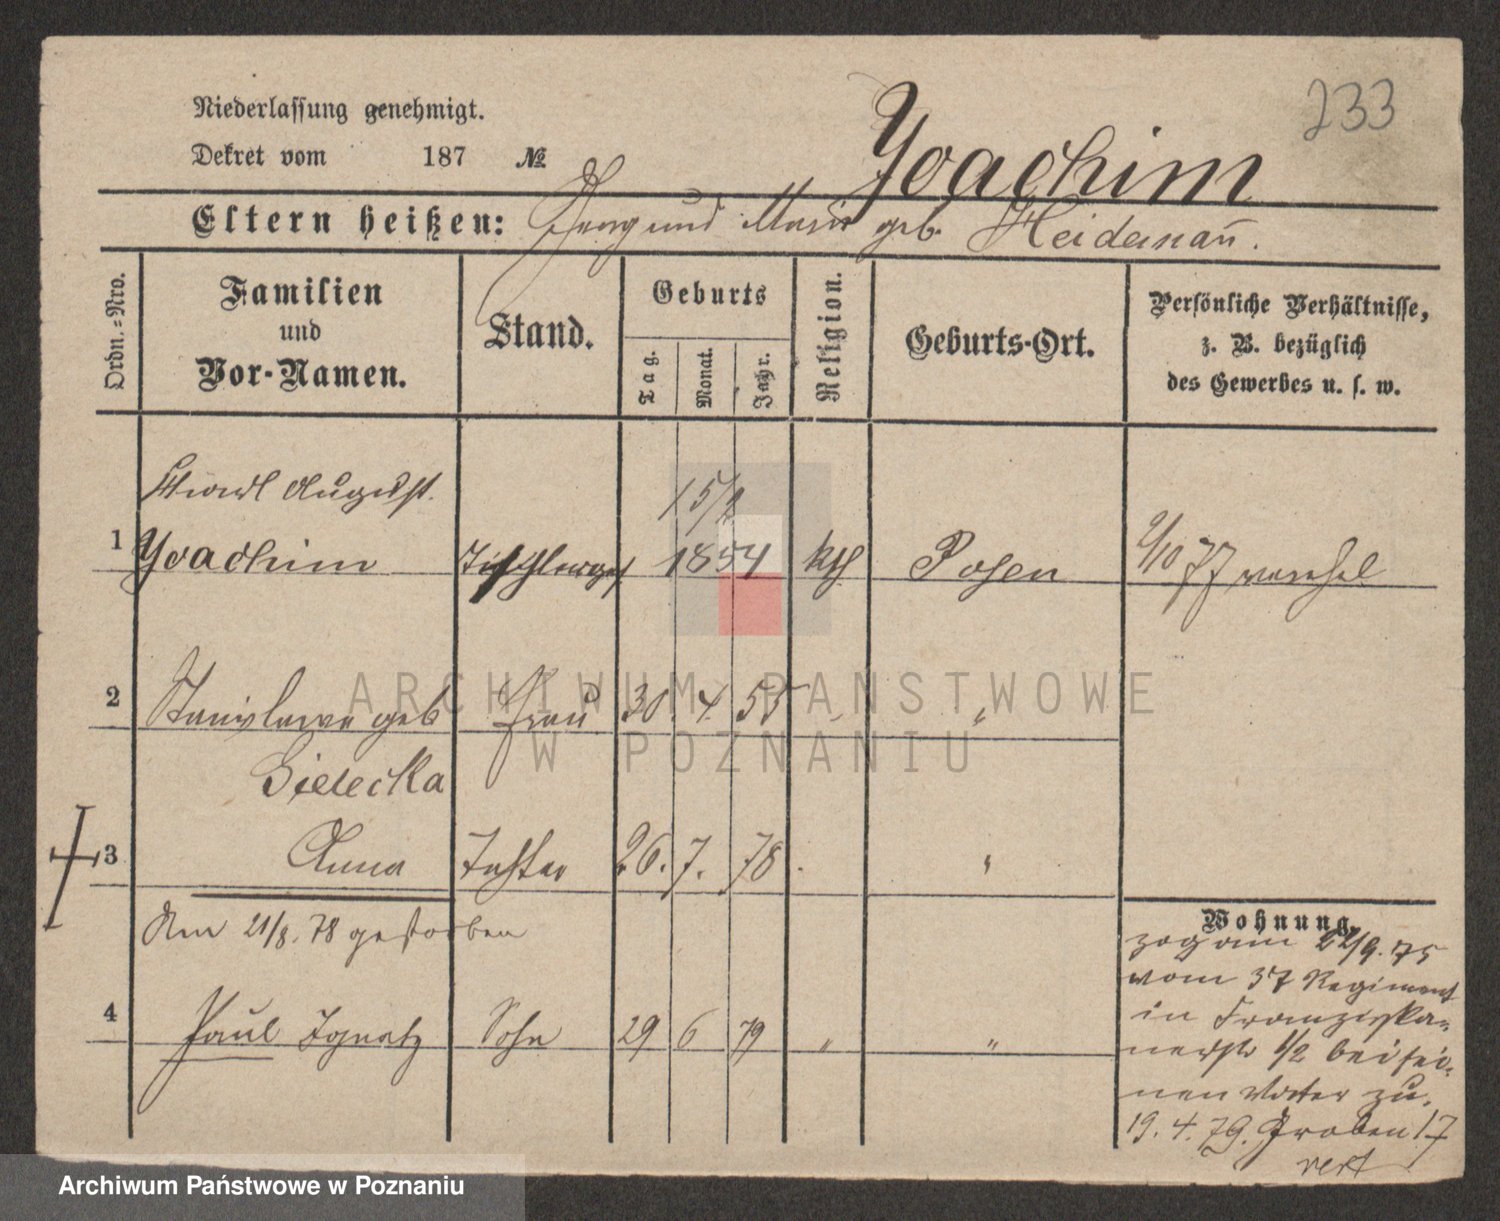 233
Niederlassung genehmigt.
Dekret vom 187 №
Joachim
Eltern heißen: Georg und Marie geb. Heidenan̄.
Ordn.=Nro.
Familien
und
Vor-Namen.
Stand.
Geburts
Tag.
Monat.
Jahr.
Religion.
Geburts-Ort.
Persönliche Verhältnisse,
z. B. bezüglich
des Gewerbes u. s. w.
Karl August.
15/2
1 Joachim Tischlerges 1854 kth Posen 2/10 77 verehel
2 Stanislawa geb Frau 30. 4. 55 "
Gielecka
3 Anna Tochter 26. 7. 78. "
Am 21/8. 78 gestorben
4 Paul Ignatz Sohn 29 6 79 " "
Wohnung.
zog am 22/9. 75
vom 37 Regiment
in Franziska=
nerstr 1/2 bei sei=
nen Vater zu.
19. 4. 79. Graben 17
vert
ARCHIWUM PAŃSTWOWE
W POZNANIU
Archiwum Państwowe w Poznaniu